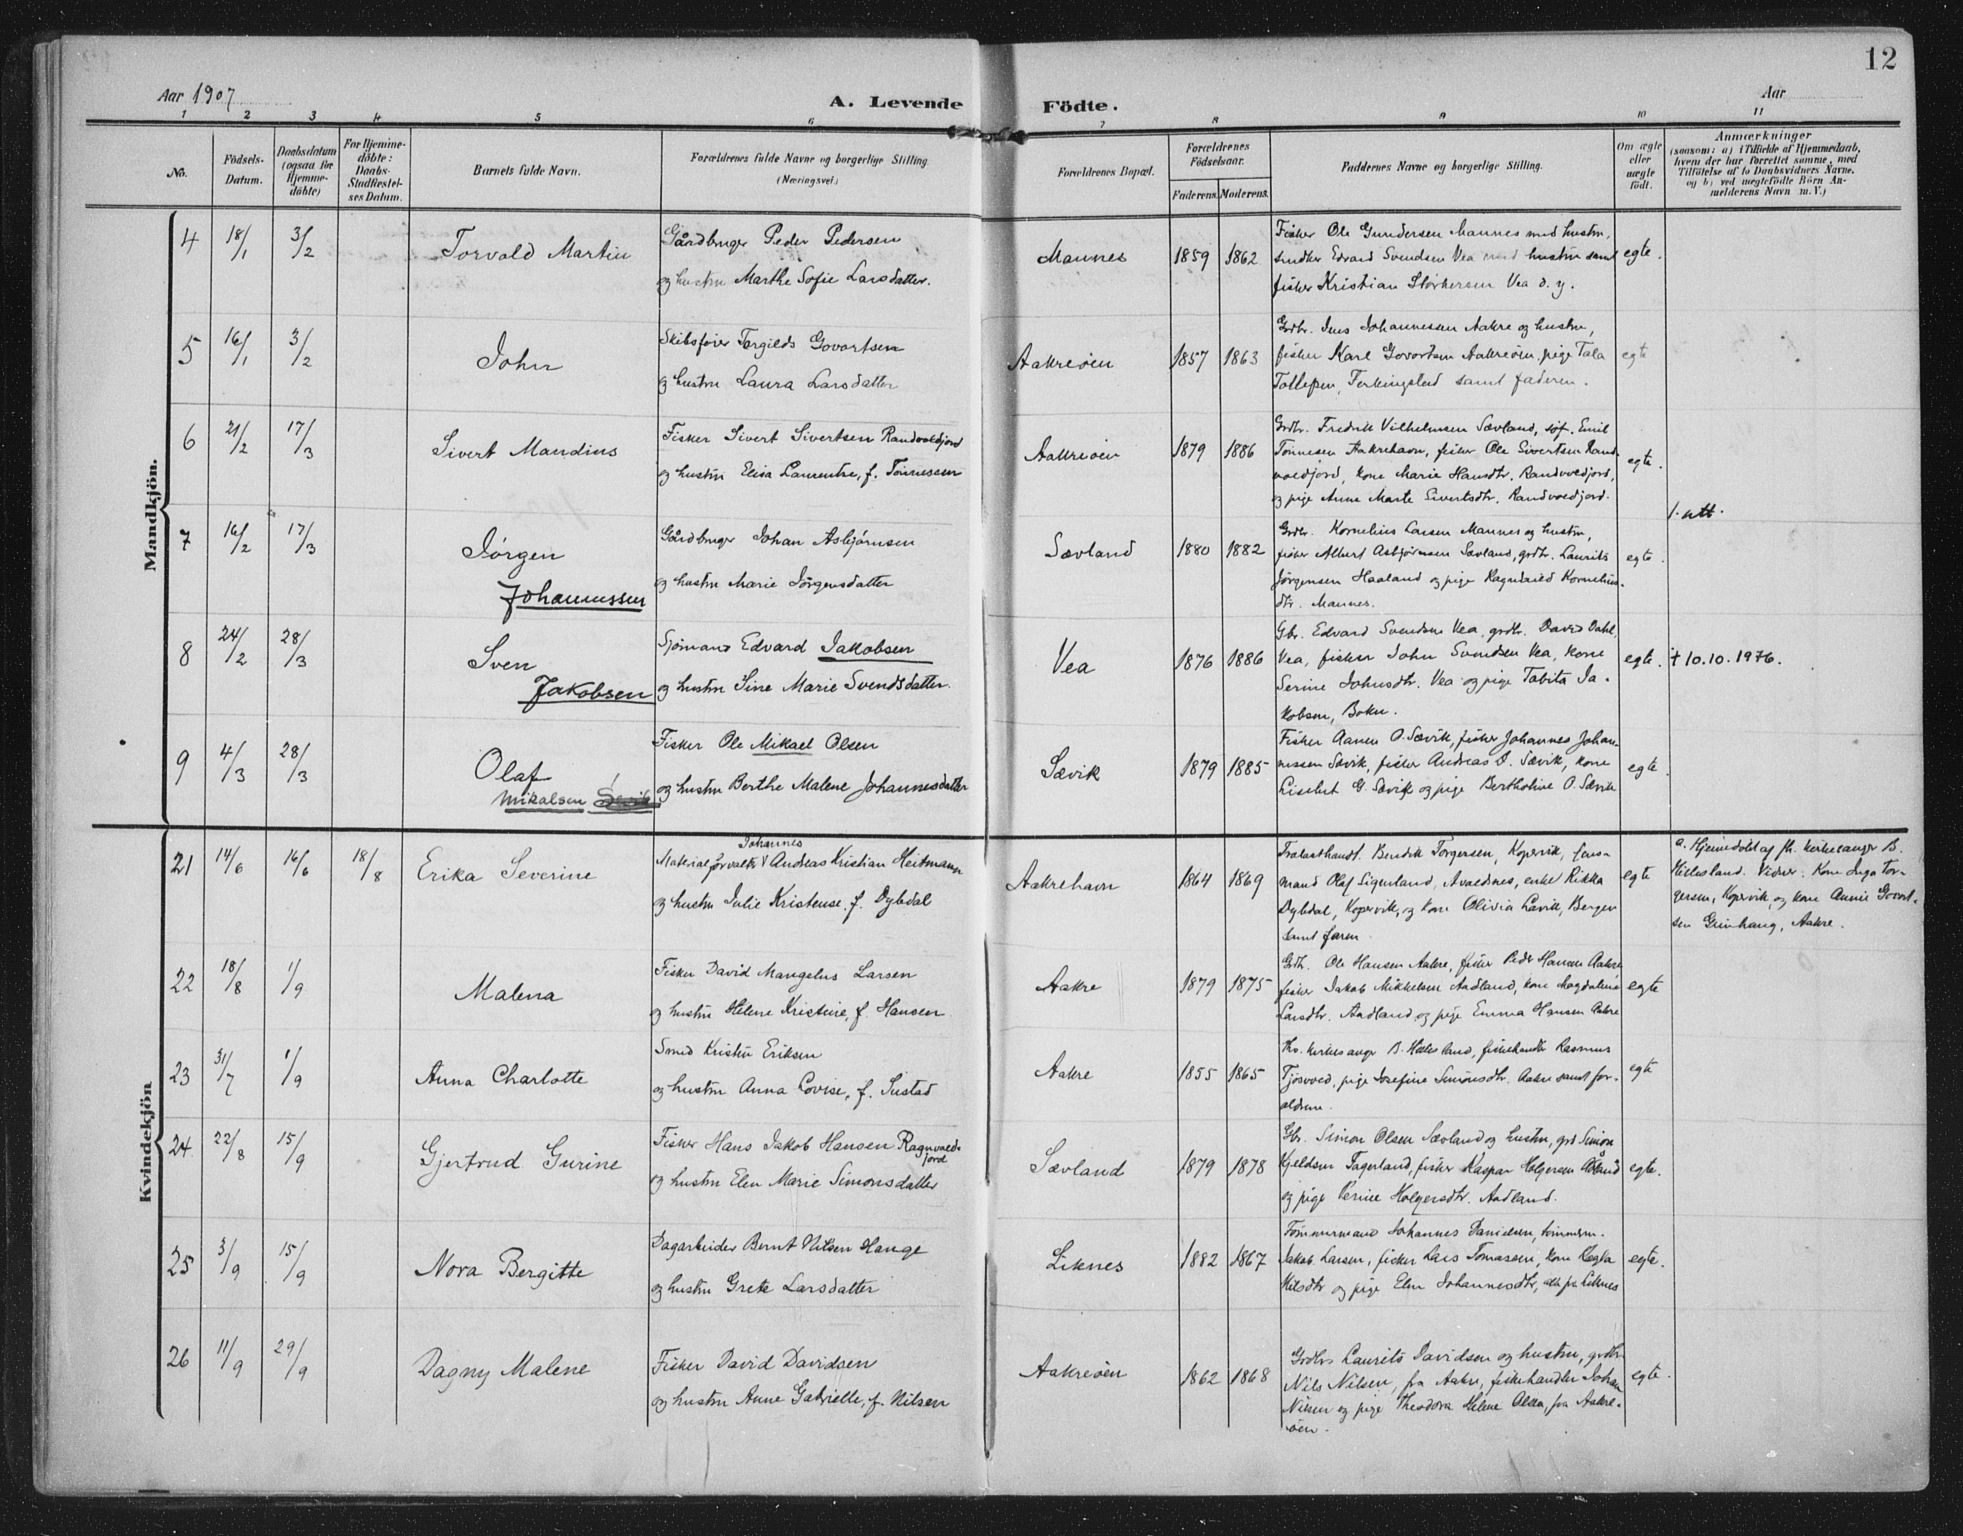 12
Aar 1907
A. Levende Födte.
Aar
1 2 3 4 5 6 7 8 9 10 11
No.
Födsels-Datum.
Daabsdatum (ogsaa for Hjemme-döbte)
For Hjemme-döbte: Daabs-Stadfestel-ses Datum.
Barnets fulde Navn.
Forældrenes fulde Navne og borgerlige Stilling (Næringsvei)
Forældrenes Bopæl.
Forældrenes Födselsaar.
Faderens. Moderens.
Faddernes Navne og borgerlige Stilling.
Om ægte eller uægte födt.
Anmærkninger
(saasom: a) i Tilfælde af Hjemmedaab,
hvem der har forrettet samme, med
Tilföielse af to Daabsvidners Navne.
og b) ved uægtefödte Börn An-
melderens Navn m. V.)
Mandkjön.
4 18/1 3/2 Torvald Martin
Gårdbruger Peder Pedersen
og hustru Marthe Sofie Larsdatter.
Mannes 1859 1862
Fisker Ole Gundersen Mannes med hustru,
snedker Edvard Svendsen Vea med hustru samt
fisker Kristian Störkersen Vea d. y.
egte.
5 16/1 3/2 John
Skibsfører Torgilds Govertsen
og hustru Laura Larsdatter
Aakreöen 1857 1863
Grdbr. Jens Johannessen Aakre og hustru,
fisker Karl Govertsen Aakreöen, pige Tala
Tollefsen, Ferkingstad samt faderen.
egte
6 21/2 17/3 Sivert Mandius
Fisker Sivert Sivertsen Randvoldfjord
og hustru Elisa Laurentse, f. Tönnessen
Aakreöen 1879 1886
Grdbr. Fredrik Vilhelmsen Sævland, søf. Emil
Tönnesen Aakrehavn, fisker Ole Sivertsen Rand-
voldfjord, kone Marie Hansdtr. Randvoldfjord,
og pige Anne Marte Sivertsdtr. Randvoldfjord.
egte.
7 16/2 17/3 Jörgen
Johannessen
Gårdbruger Johan Asbjörnsen
og hustru Marie Jörgensdatter
Sævland 1880 1882
Grdbr. Kornelius Larsen Mannes og hustru,
fisker Albert Asbjörnsen Sævland, grdbr. Laurits
Jörgensen Haaland og pige Ragnhild Kornelius-
dtr. Mannes.
egte.
1. att.
8 24/2 28/3 Sven
Jakobsen
Sjömand Edvard Jakobsen
og hustru Sine Marie Svendsdatter.
Vea 1876 1886
Gbr. Edvard Svendsen Vea, grdbr. David Dahl,
Vea, fisker John Svendsen Vea, kone
Serine Johnsdtr. Vea og pige Tabita Ja-
kobsen, Bokn.
egte.
† 10.10.1976.
9 4/3 28/3 Olaf
Mikalsen
Fisker Ole Mikael Olsen
og hustru Berthe Malene Johannesdatter
Sævik 1879 1885
Fisker Aanen O. Sævik, fisker Johannes Johan-
nessen Sævik, fisker Andreas O. Sævik, kone
Liselet G. Sævik og pige Bertholine O. Sævik
egte.
Kvindekjön
21 14/6 16/6 18/8 Erika Severine
Materialforvalter Johannes Andreas Kristian Heitmann
og hustru Julie Kristense, f. Dybdal
Aakrehavn 1864 1869
Tralasthandl. Bendik Torgersen, Kopervik, fens-
mand Olaf Sigerland, Avaldsnes, enke Rikka
Dybdal, Kopervik, og kone Olivia Lavik, Bergen
samt faren.
egte
a. Hjemdøbt af fh. kirkesanger B.
Helesland. Vidner: Kone Inga Tor-
gersen, Kopervik, og kone Annie Govert-
sen Grinhaug, Aakre.
22 18/8 1/9 Malena
Fisker David Mangelus Larsen
og hustru Helene Kristine, f. Hansen
Aakre 1879 1875
Grdbr. Ole Hansen Aakre, fisker Peder Hansen Aakre
fisker Jakob Mikkelsen Aadland, kone Magdalene
Larsdtr. Aadland og pige Emma Hansen Aakre
egte
23 31/7 1/9 Anna Charlotte
Smed Kristen Eriksen
og hustru Anna Lovise, f. Sustad
Aakre 1855 1865
Fhv. kirkesanger B. Helesland, fiskehandler Rasmus
Tjosvold, pige Josefine Simonsdtr. Aakre samt for-
ældrene.
egte
24 22/8 15/9 Gjertrud Gurine
Fisker Hans Jakob Hansen Ragnvalds-
fjord
og hustru Elen Marie Simonsdatter
Sævland 1879 1878
Gbr. Simon Olsen Sævland og hustru, grd Simon
Kjeldsen Tagerland, fisker Kaspar Holgersen Ådland
og pige Penine Holgersdtr. Aadland.
egte.
25 3/9 15/9 Nora Bergitte
Dagarbeider Bernt Nilsen Hauge
og hustru Grete Larsdatter
Liknes 1882 1867
Tömmermand Johannes Danielsen, tömmerm.
Jakob Larsen, fisker Lars Tomassen, kone Regta
Nilsdtr og pige Elen Johannesdtr, alle fra Liknes
egte.
26 11/9 29/9 Dagny Malene
Fisker David Davidsen
og hustru Anne Gabrielle, f. Nilsen
Aakreöen 1862 1868
Grdbr. Laurits Davidsen og hustru, grdbr
Nils Nilsen, fra Aakre, fiskehandler Johan
Nilsen og pige Theodora Helene Olsen, fra Aakre-
öen.
egte.